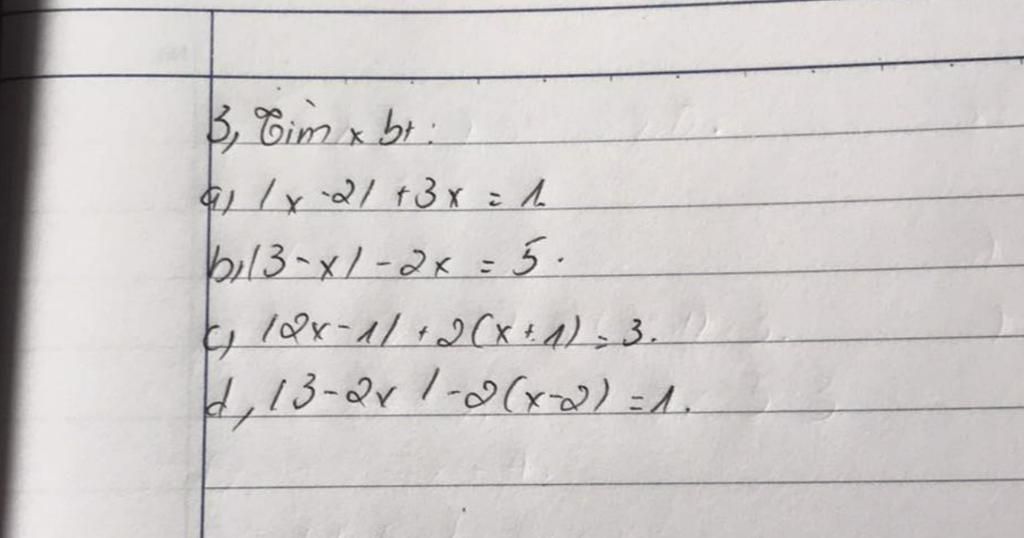 3, Tìm x bt :
a) |x - 2| + 3x = 1.
b) |3 - x| - 2x = 5.
c) |2x - 1| + 2(x + 1) = 3.
d, |3 - 2x| - 2(x - 2) = 1.